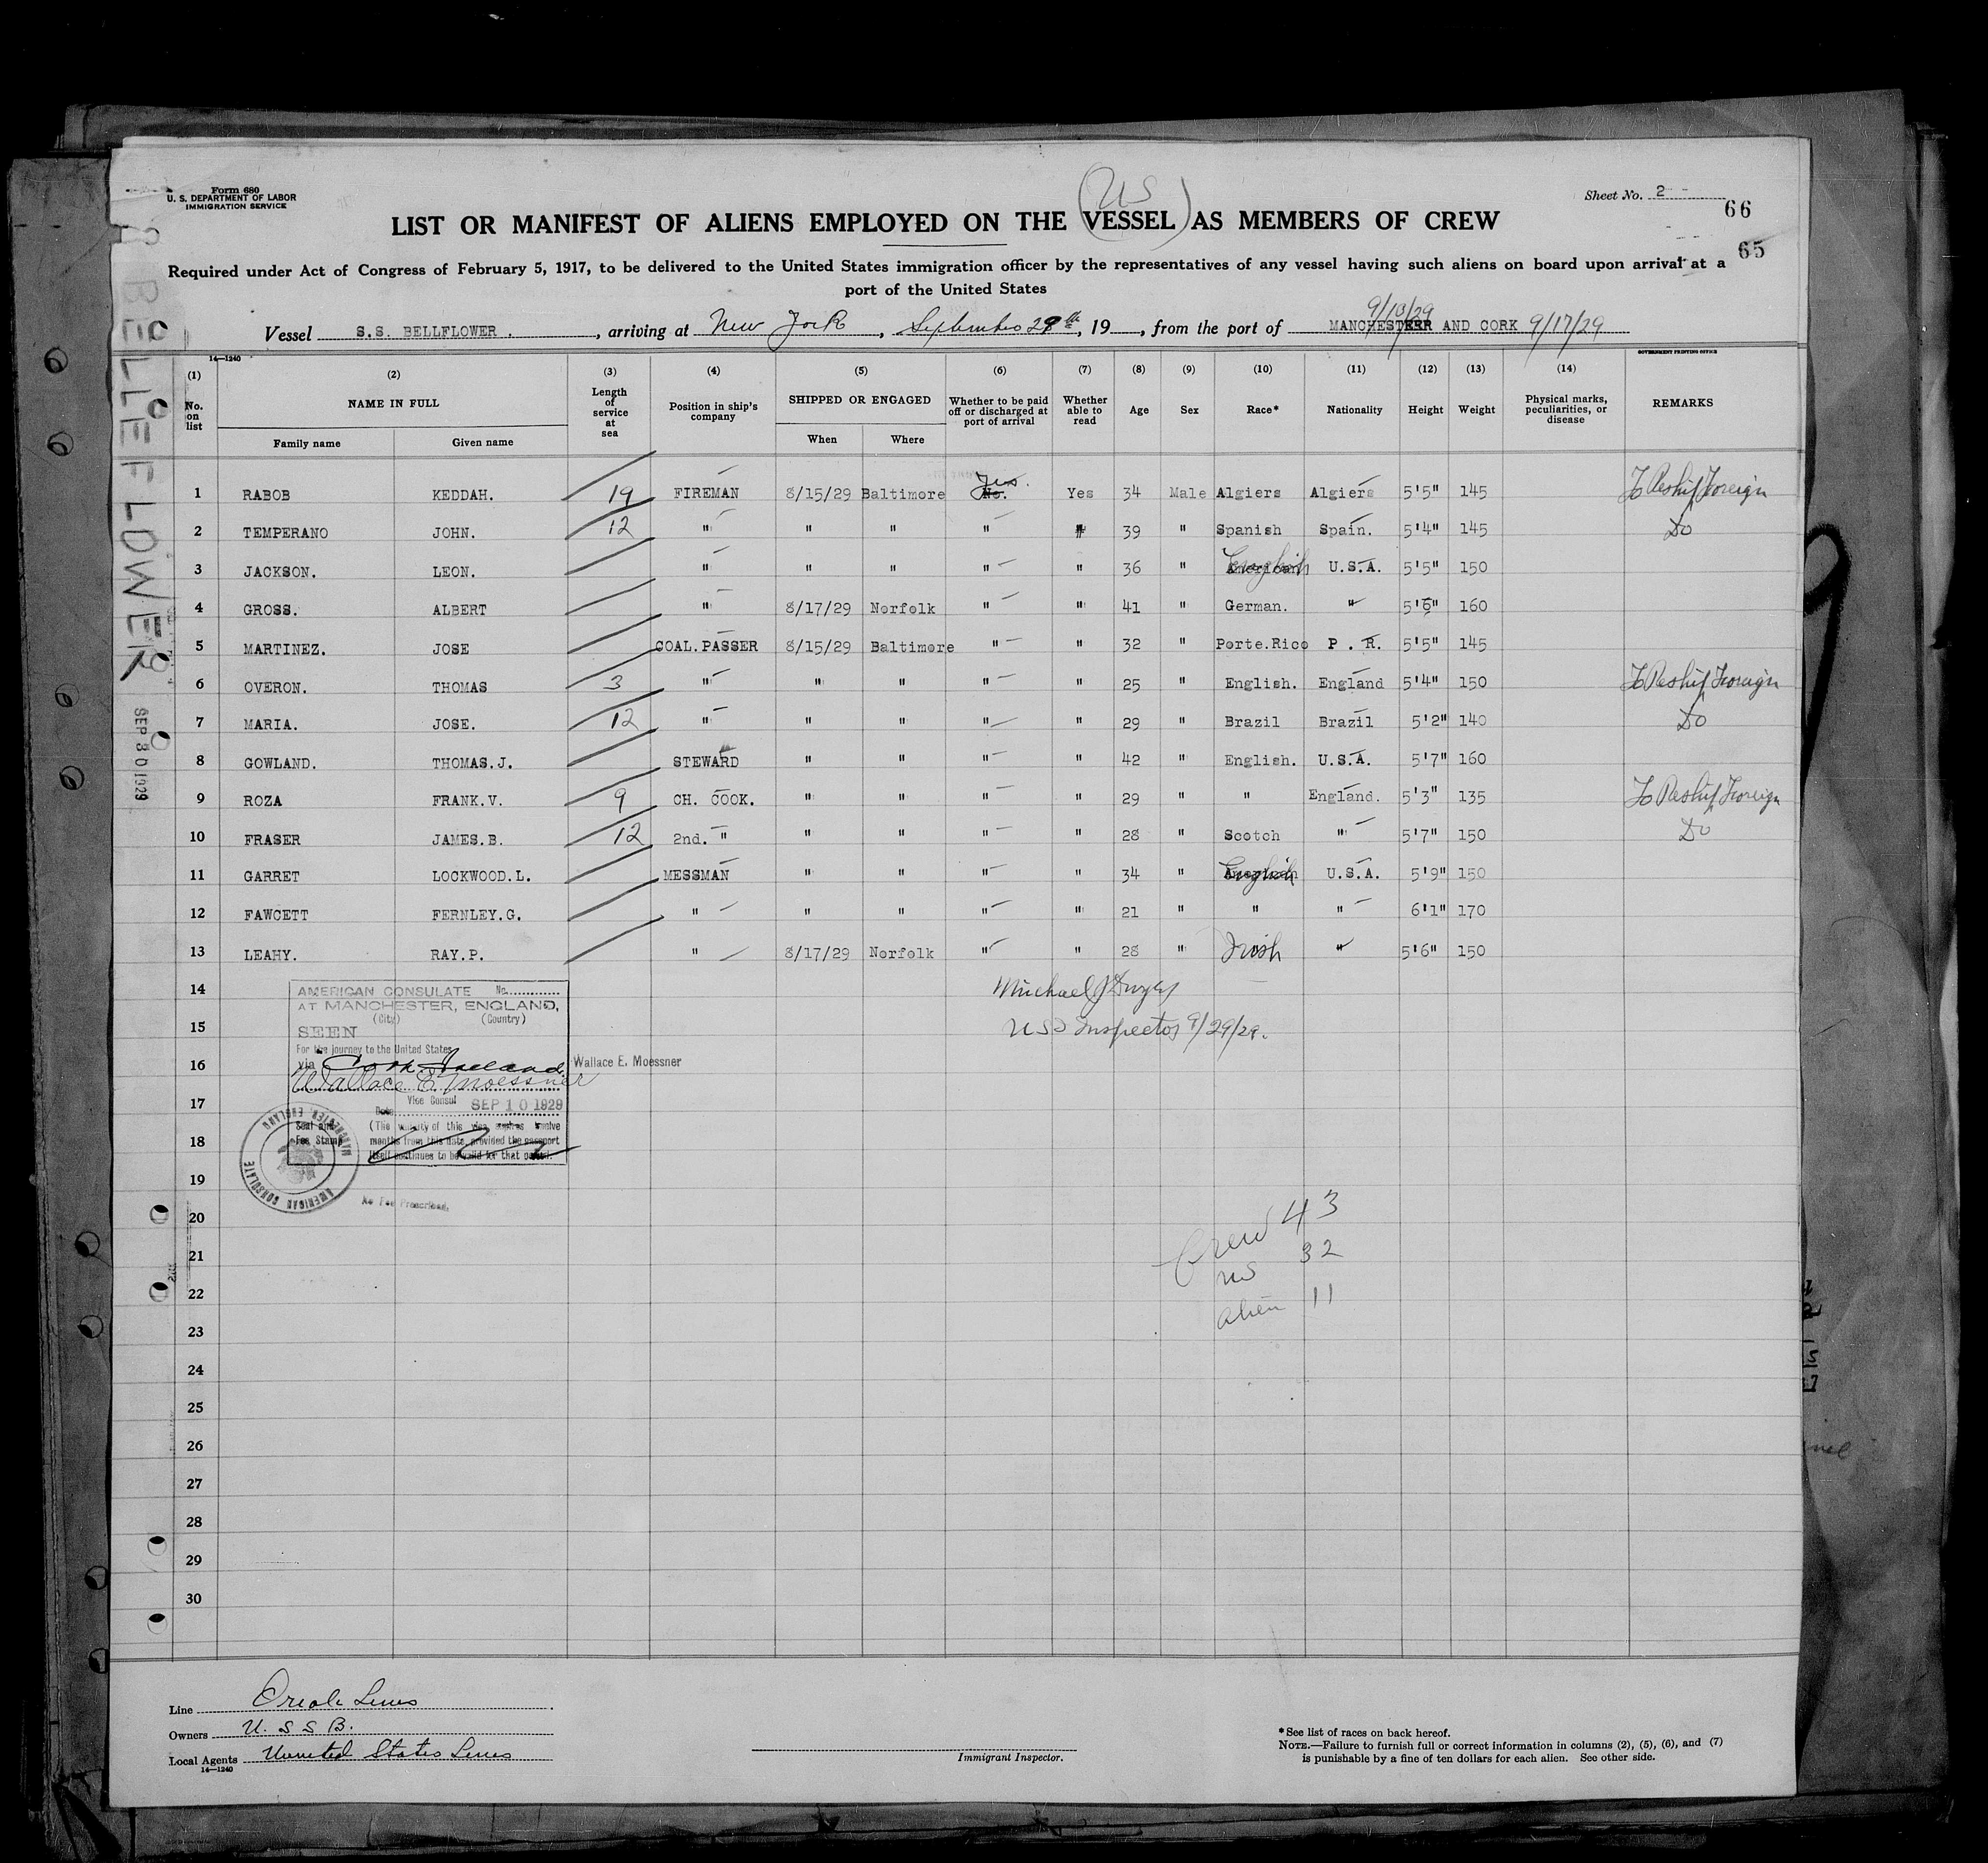 Form 680
U. S. DEPARTMENT OF LABOR
IMMIGRATION SERVICE
(US)
Sheet No. 2
66
65
LIST OR MANIFEST OF ALIENS EMPLOYED ON THE VESSEL AS MEMBERS OF CREW
Required under Act of Congress of February 5, 1917, to be delivered to the United States immigration officer by the representatives of any vessel having such aliens on board upon arrival at a
port of the United States
9/10/29
Vessel S.S. BELLFLOWER. , arriving at New York , September 28th, 19 , from the port of MANCHESTER AND CORK 9/17/29
14—1240
GOVERNMENT PRINTING OFFICE
(1) No. on list
(2) NAME IN FULL Family name Given name
(3) Length of service at sea
(4) Position in ship's company
(5) SHIPPED OR ENGAGED When Where
(6) Whether to be paid off or discharged at port of arrival
(7) Whether able to read
(8) Age
(9) Sex
(10) Race*
(11) Nationality
(12) Height
(13) Weight
(14) Physical marks, peculiarities, or disease
REMARKS
1 RABOB KEDDAH. 19 FIREMAN 8/15/29 Baltimore Yes. No. Yes 34 Male Algiers Algiers 5'5" 145 To Reship Foreign
2 TEMPERANO JOHN. 12 " " " " " 39 " Spanish Spain. 5'4" 145 Do
3 JACKSON. LEON. " " " " " 36 " English U.S.A. 5'5" 150
4 GROSS. ALBERT " 8/17/29 Norfolk " " 41 " German. " 5'6" 160
5 MARTINEZ. JOSE COAL.PASSER 8/15/29 Baltimore " " 32 " Porto.Rico P . R. 5'5" 145
6 OVERON. THOMAS 3 " " " " " 25 " English. England 5'4" 150 To Reship Foreign
7 MARIA. JOSE. 12 " " " " " 29 " Brazil Brazil 5'2" 140 Do
8 GOWLAND. THOMAS.J. STEWARD " " " " 42 " English. U.S.A. 5'7" 160
9 ROZA FRANK.V. 9 CH. COOK. " " " " 29 " " England. 5'3" 135 To Reship Foreign
10 FRASER JAMES.B. 12 2nd. " " " " " 28 " Scotch " 5'7" 150 Do
11 GARRET LOCKWOOD.L. MESSMAN " " " " 34 " English U.S.A. 5'9" 150
12 FAWCETT FERNLEY.G. " " " " " 21 " " " 6'1" 170
13 LEAHY. RAY.P. " 8/17/29 Norfolk " " 28 " Irish " 5'6" 150
14
15
16
17
18
19
20
21
22
23
24
25
26
27
28
29
30
Michael J Dwyer
USI Inspector 9/29/29.
AMERICAN CONSULATE No.
AT MANCHESTER, ENGLAND,
(City) (Country)
SEEN
For the journey to the United States
via Cork Ireland
Wallace E. Moessner
Wallace E. Moessner
Vice Consul
Date SEP 10 1929
Seal and Fee Stamp
(The validity of this visa expires twelve
months from this date provided the passport
itself continues to be valid for that period.
AMERICAN CONSULATE
MANCHESTER, ENGLAND
No Fee Prescribed.
Crew 43
US 32
alien 11
BELLEFLOWER
SEP 30 1929
Line Oriole Lines
Owners U. S S B.
Local Agents United States Lines
14—1240
Immigrant Inspector.
*See list of races on back hereof.
NOTE.—Failure to furnish full or correct information in columns (2), (5), (6), and (7)
is punishable by a fine of ten dollars for each alien. See other side.